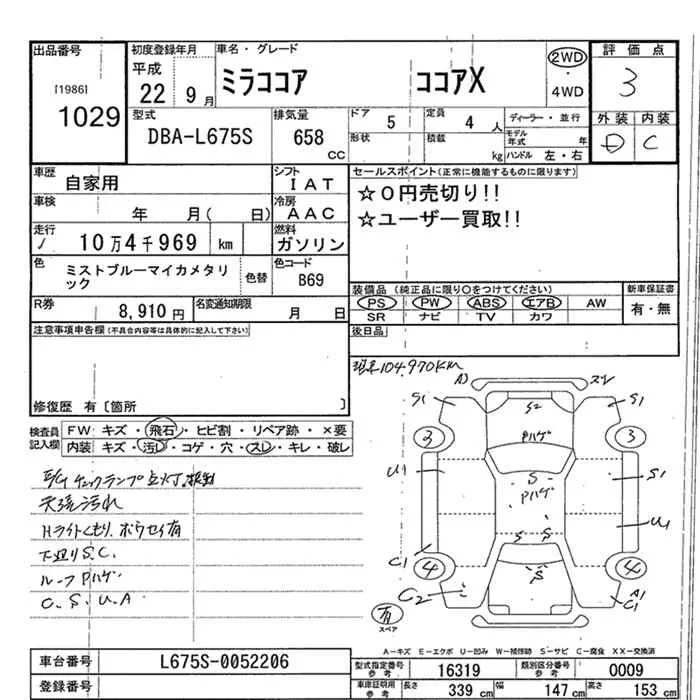 出品番号
[1986]
1029
初度登録年月
平成
22 9月
車名・グレード
ミラココア ココアX
2WD
・
4WD
評価点
3
外装 内装
D C
型式
DBA-L675S
排気量
658
CC
ドア
5
定員
4 人
ディーラー・並行
形状
積載
kg
モデル年式
年
ハンドル 左・右
車歴
自家用
シフト
IAT
車検
年 月( 日)
冷房
AAC
走行
10万4千969 km
燃料
ガソリン
色
ミストブルーマイカメタリック
色替
色コード
B69
R券
8,910円
名変通知期限
月 日
セールスポイント(正常に機能するものに限ります)
☆0円売切り!!
☆ユーザー買取!!
装備品 (純正品に限り○をつけてください)
新車保証書
PS PW ABS エアB AW
有・無
SR ナビ TV カワ
後日品
注意事項申告欄(不具合内容等は具体的に記入して下さい)
修復歴 有〔箇所 〕
検査員記入欄
FW キズ・飛石・ヒビ割・リペア跡・×要
内装 キズ・汚レ・コゲ・穴・スレ・キレ・破レ
E/Gチェックランプ点灯.
天張汚れ
Hライトくもり.ボウセイ有
下廻りS.C.
ルーフPハゲ
C.S.U.A
104,970KM
A
S1
S2
S1
3
Pハゲ
3
U1
S
Pハゲ
S1
U1
S S
C1
4
S
4
C2
A1
C1
有
スペア
A-キズ E-エクボ U-凹み W-補修跡 S-サビ C-腐食 XX-交換済
車台番号
L675S-0052206
登録番号
型式指定番号
参考
16319
類別区分番号
参考
0009
車庫証明用
参考
長さ 339 cm
幅 147 cm
高さ 153 cm